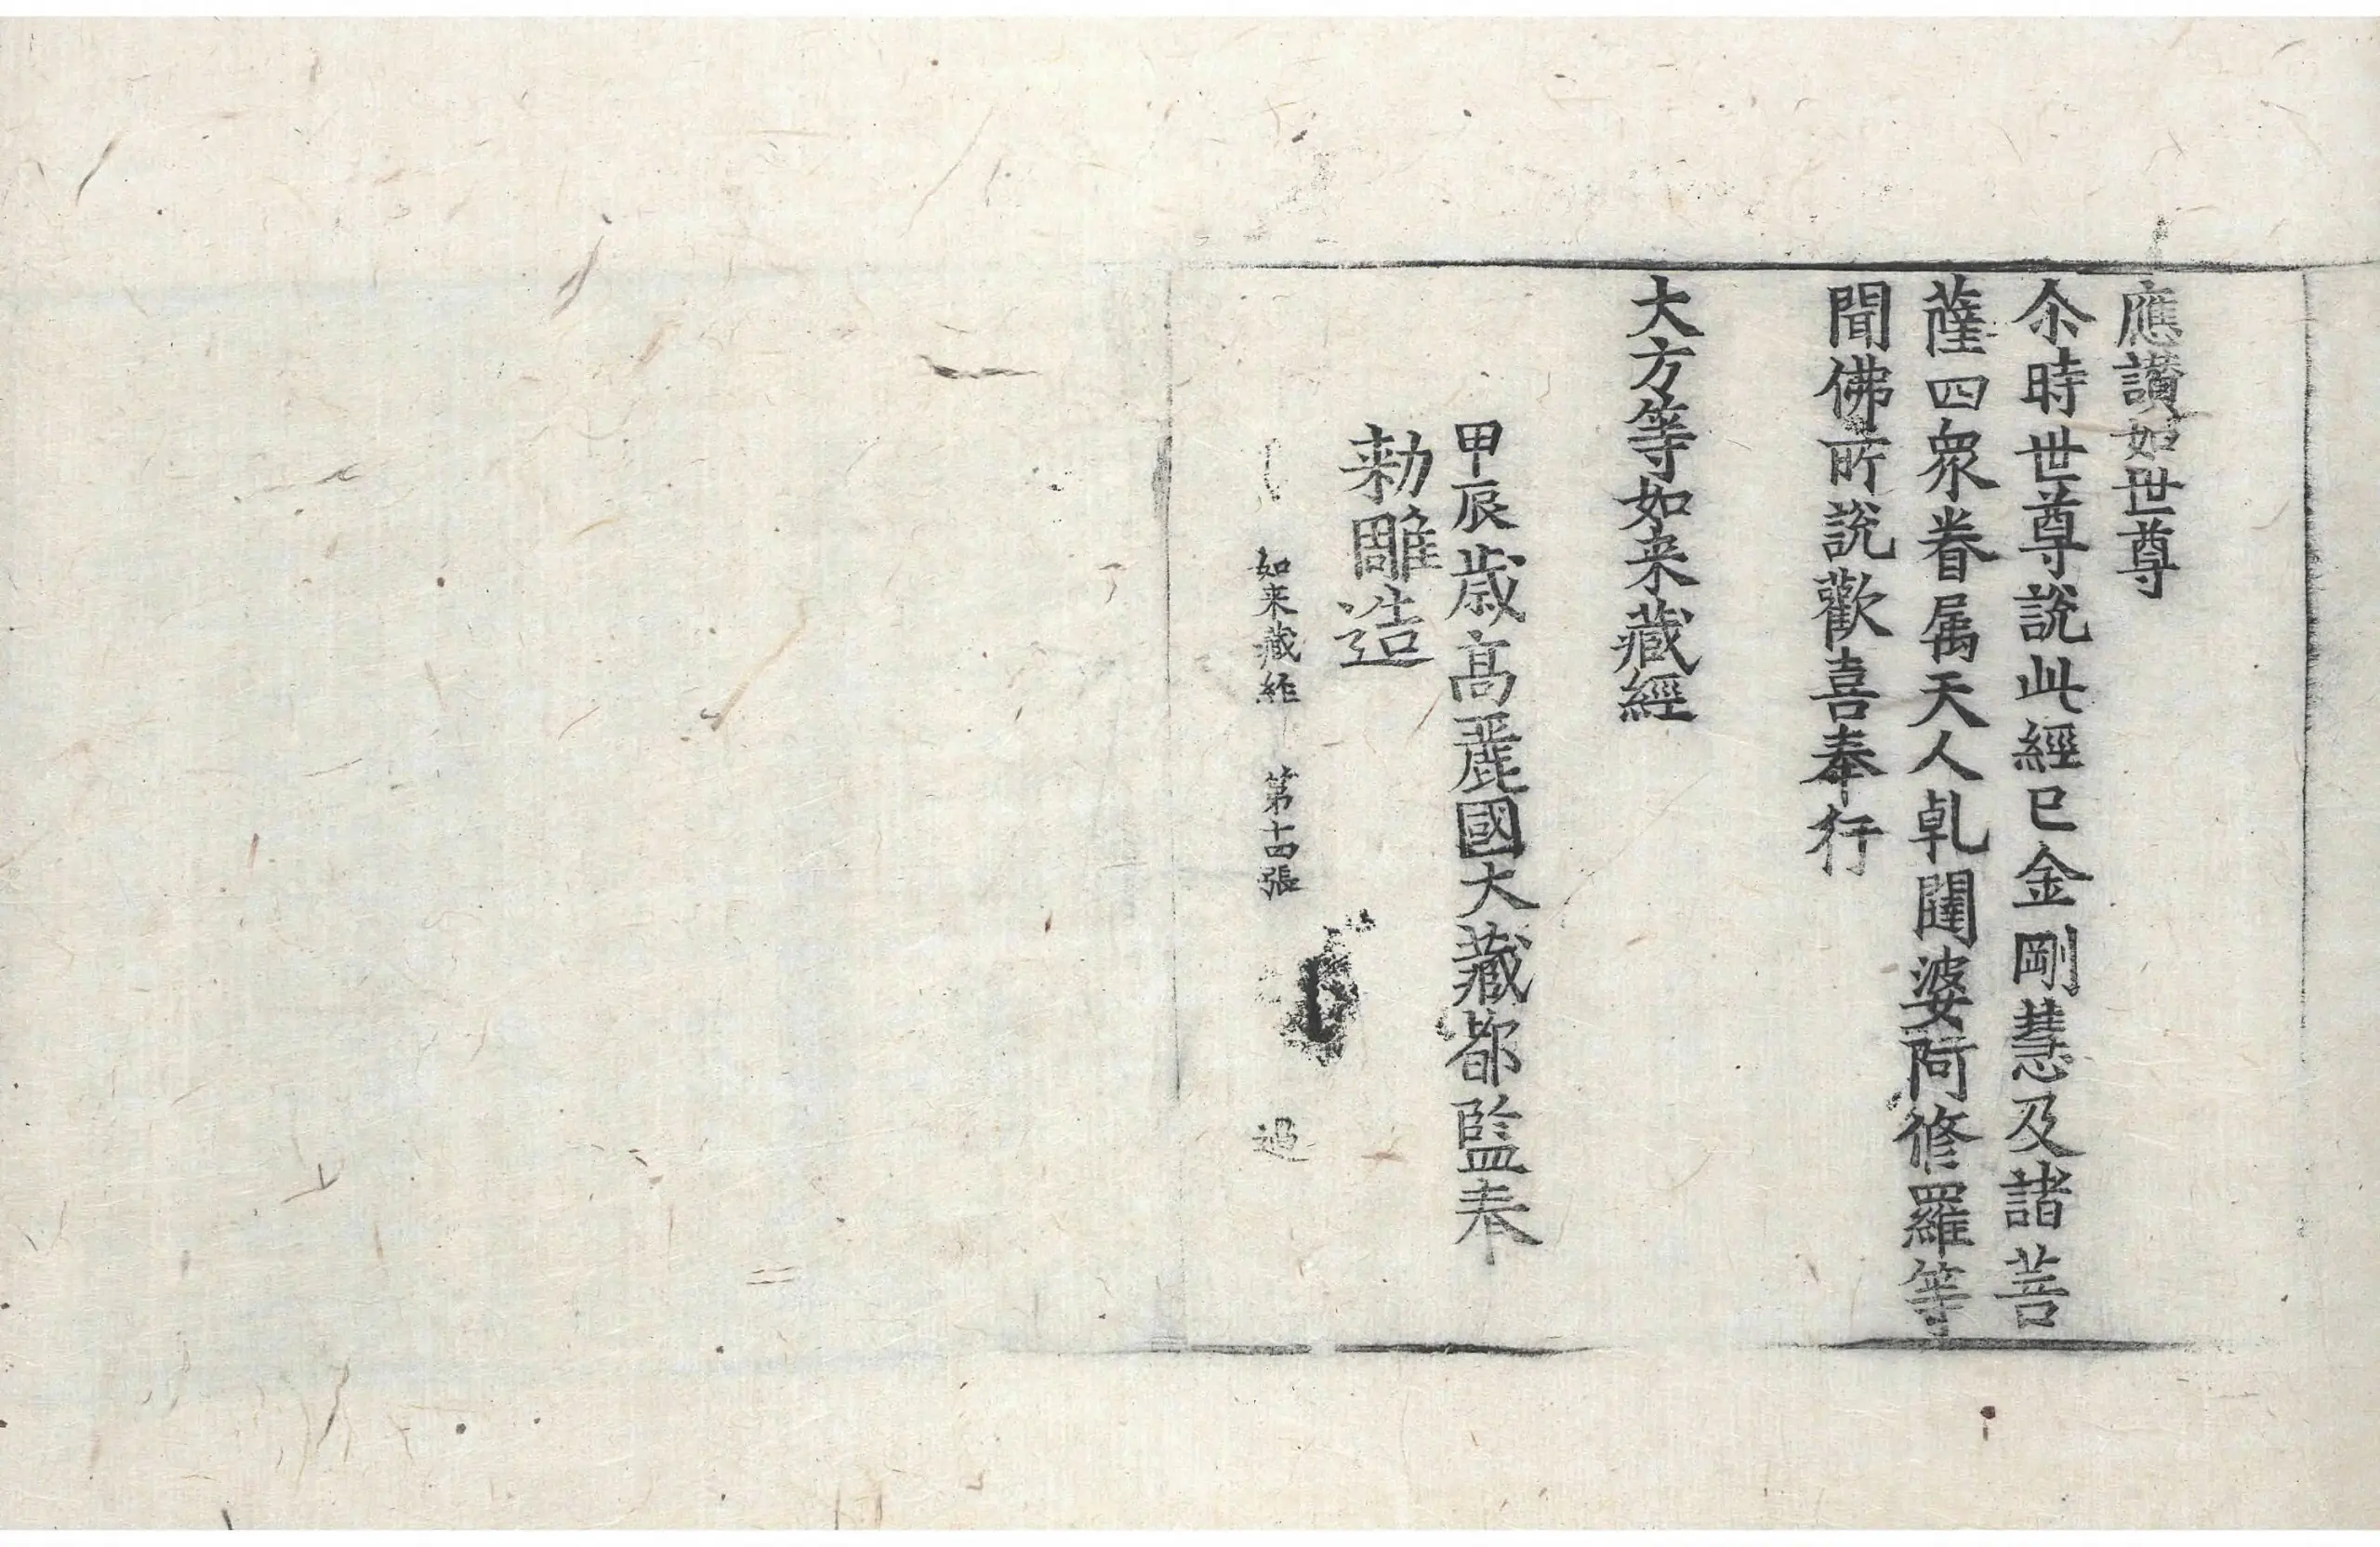 應讃如世尊
尒時世尊說此經已金剛慧及諸菩
薩四衆眷属天人乹闥婆阿修羅等
聞佛所說歡喜奉行
大方等如来藏經
甲辰歳髙麗國大藏都監奉
勑雕造
如来藏経 第十四張 過